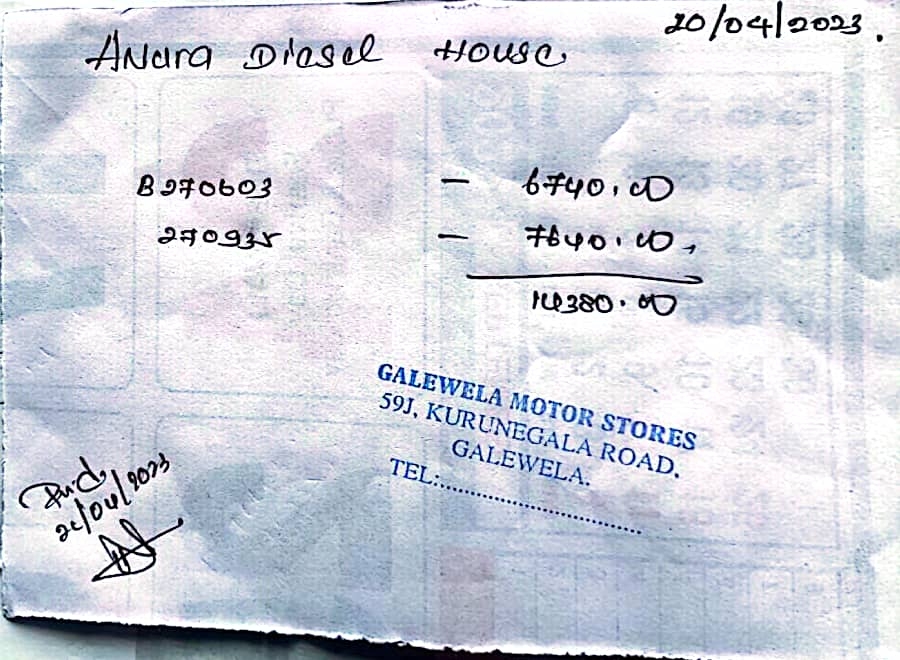 20/04/2023.
Anura Diesel House
B270603 - 6740.00
270935 - 7640.00
14380.00
GALEWELA MOTOR STORES
59J, KURUNEGALA ROAD,
GALEWELA.
TEL:................................
/04/2023